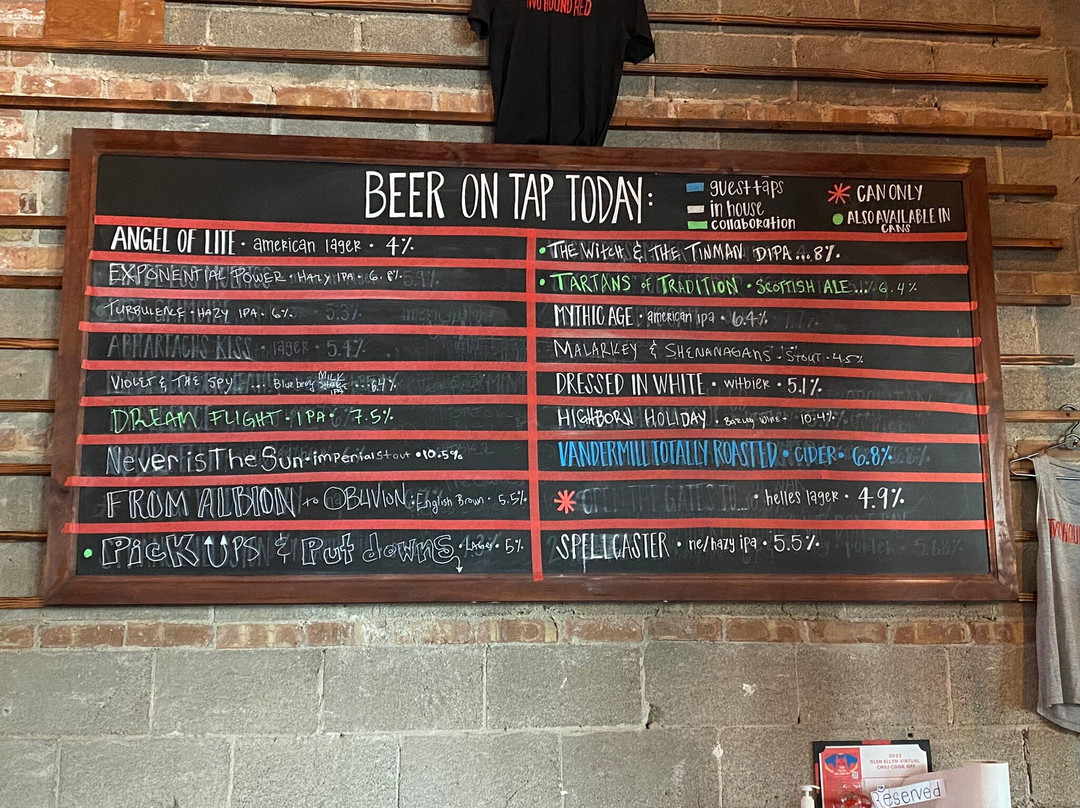 TWO HOUND RED
BEER ON TAP TODAY:
guest taps
in house
collaboration
CAN ONLY
ALSO AVAILABLE IN
CANS
ANGEL OF LITE • american lager • 4%
EXPONENTIAL POWER • HAZY IPA • 6.8%
TURBULENCE • HAZY IPA • 6%
ABHARTACHS KISS • lager • 5.4%
VIOLET & THE SPY .... Blueberry MILK SHAKE IPA ...6.4%
DREAM FLIGHT • IPA • 7.5%
Never is The Sun • imperial stout • 10.5%
FROM ALBION to OBLIVION • English Brown • 5.5%
PicK UPS & Put downs • LAGER • 5%
THE WITCH & THE TINMAN DIPA ... 8%
TARTANS of TRADITION • SCOTTISH ALE... 6.4%
MYTHIC AGE • american ipa • 6.4%
MALARKEY & SHENANAGANS • STOUT • 4.5%
DRESSED IN WHITE • witbier • 5.1%
HIGHBORN HOLIDAY • Barley Wine • 10.4%
VANDERMILL TOTALLY ROASTED • CIDER • 6.8%
OPEN THE GATES TO.... • helles lager • 4.9%
SPELLCASTER • ne/hazy ipa • 5.5%
2022
GLEN ELLYN VIRTUAL
CHILI COOK OFF
Reserved